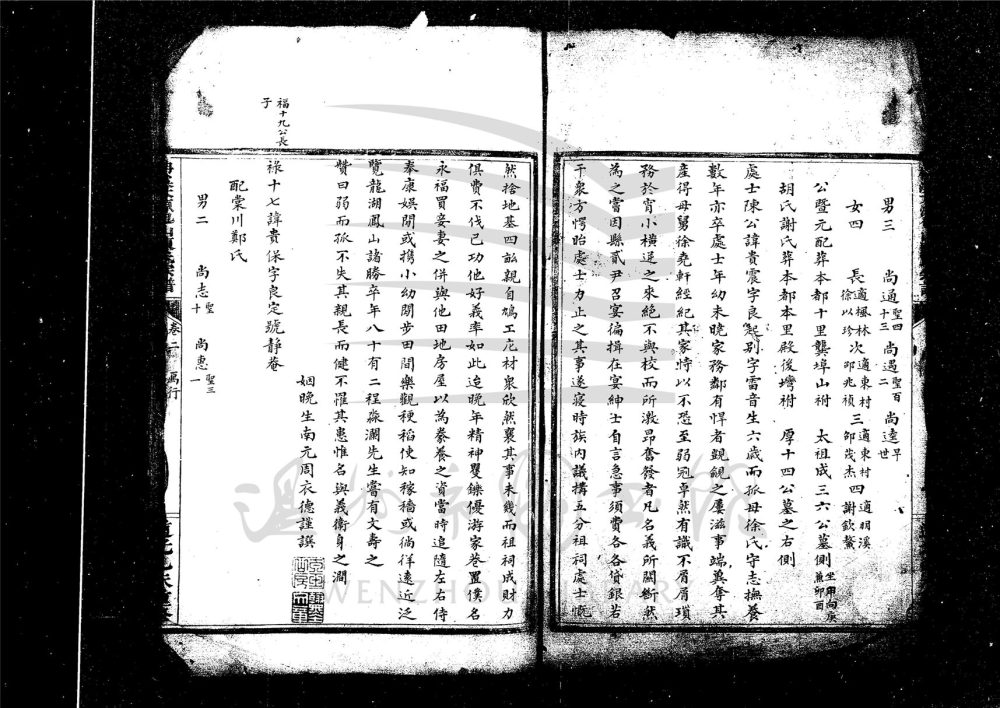 男三 尚通聖四十三 尚遇聖百二 尚逵早世
女四 長適楓林徐以珍 次適東村邵兆禎 三適東村邵茂杰 四適明溪謝欽鰲
公暨元配葬本都十里龔埠山祔 太祖成三六公墓側坐甲向庚兼卯酉
胡氏謝氏葬本都本里殿後塆祔 厚十四公墓之右側
處士陳公諱貴震字良起別字雷音生六歲而孤母徐氏守志撫養
數年亦卒處士年幼未曉家務鄰有悍者覬覦之屢滋事端冀奪其
產得母舅徐堯軒經紀其家恃以不恐至弱冠卓然有識不屑屑瑣
務於宵小橫逆之來絕不與校而所激昂奮發者凡名義所關斷然
為之嘗因縣貳尹召宴徧揖在宴紳士自言急事須費各各貸銀若
干衆方愕眙處士力止之其事遂寢時族內議構五分祖祠處士慨
然捨地基四畝親自鳩工庀材衆欣然襄其事未幾而祖祠成財力
俱費不伐己功他好義率如此迨晚年精神矍鑠優游家巷置僕名
永福買妾妻之併與他田地房屋以為豢養之資當時追隨左右侍
奉康娛閒或携小幼閒步田間樂觀稉稻使知稼穡或徜徉遠近泛
覽龍湖鳳山諸勝卒年八十有二程淼瀾先生嘗有文壽之
贊曰弱而孤不失其親長而健不罹其患惟名與義衛身之澗
姻晚生南元周衣德謹譔
福十九公長子
祿十七諱貴保字良定號靜菴
配棠川鄭氏
男二 尚志聖十 尚惠聖三一
卷二
萬行
溫州市圖書館
WENZHOU LIBRARY